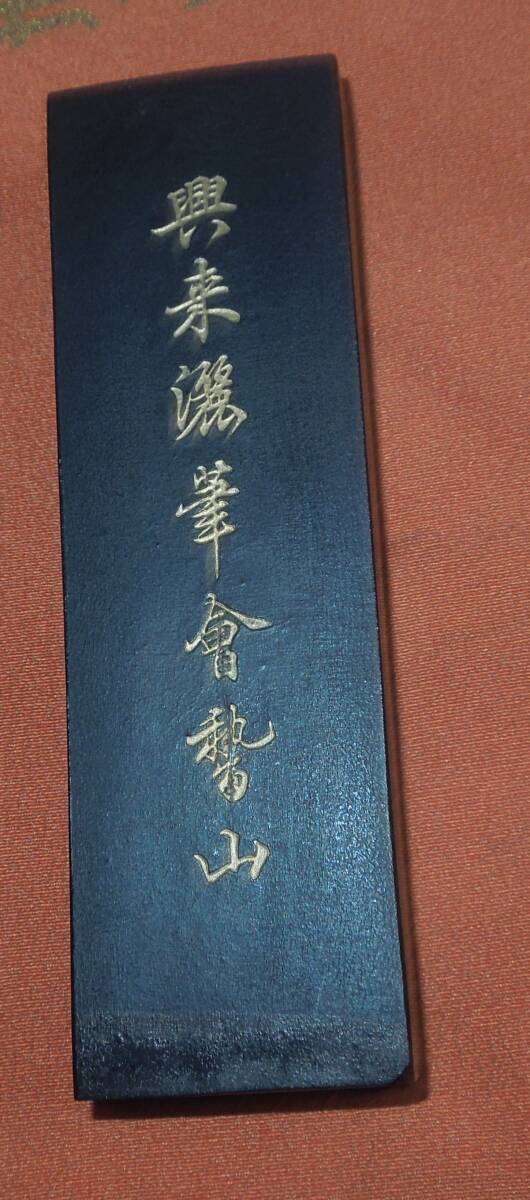 興来灑筆會稽山